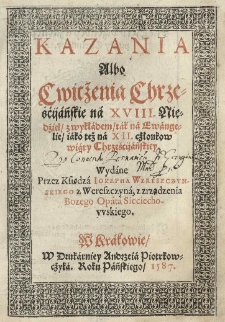 KAZANIA
Albo
Cwiczenia Chrze-
śćijáńskie ná XVIII. Nie-
dźiel/ z wykłádem/ ták ná Ewánge-
lie/ iáko też ná XII. Cżłonkow
wiáry Chrześćijáńskiey
Wydáne
Przez Kśiędzá IOZEPHA WERESZCZYN-
SKIEGO z Wereszczyná, z zrządzenia
Bożego Opátá Sieciecho-
vvskiego.
W Krákowie/
W Drukárniey Andrzeiá Piotrkow-
czyká. Roku Páńskiego/ 1587.